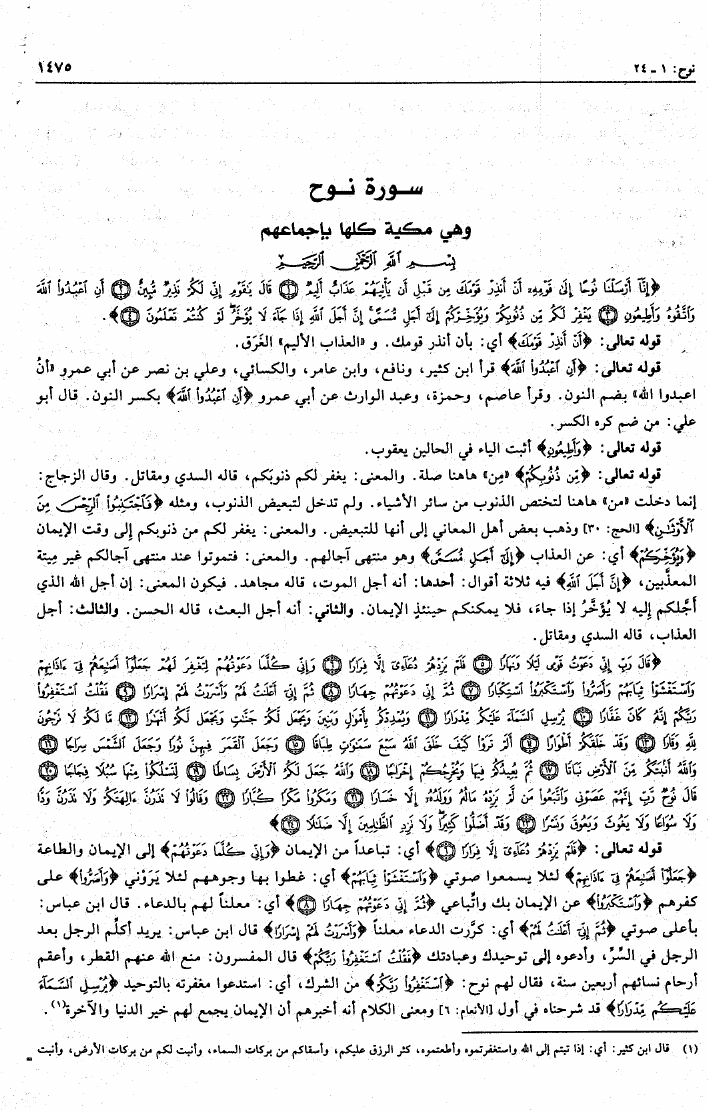 نوح: ١ ـ ٢٤
١٤٧٥
سـورة نـوح
وهي مكية كلها بإجماعهم
بِسْمِ اللَّهِ الرَّحْمَنِ الرَّحِيمِ
﴿إِنَّا أَرْسَلْنَا نُوحًا إِلَى قَوْمِهِ أَنْ أَنذِرْ قَوْمَكَ مِن قَبْلِ أَن يَأْتِيَهُمْ عَذَابٌ أَلِيمٌ ۝١ قَالَ يَقَوْمِ إِنِّي لَكُمْ نَذِيرٌ مُّبِينٌ ۝٢ أَنِ اعْبُدُوا اللَّهَ
وَاتَّقُوهُ وَأَطِيعُونِ ۝٣ يَغْفِرْ لَكُم مِّن ذُنُوبِكُمْ وَيُؤَخِّرْكُمْ إِلَى أَجَلٍ مُّسَمًّى إِنَّ أَجَلَ اللَّهِ إِذَا جَاءَ لَا يُؤَخَّرُ لَوْ كُنتُمْ تَعْلَمُونَ ۝٤﴾.
قوله تعالى: ﴿أَنْ أَنذِرْ قَوْمَكَ﴾ أي: بأن أنذر قومك. و «العذاب الأليم» الغَرَق.
قوله تعالى: ﴿أَنِ اعْبُدُوا اللَّهَ﴾ قرأ ابن كثير، ونافع، وابن عامر، والكسائي، وعلي بن نصر عن أبي عمرو «أنُ
اعبدوا الله» بضم النون. وقرأ عاصم، وحمزة، وعبد الوارث عن أبي عمرو ﴿أَنِ اعْبُدُوا اللَّهَ﴾ بكسر النون. قال أبو
علي: من ضم كره الكسر.
قوله تعالى: ﴿وَأَطِيعُونِ﴾ أثبت الياء في الحالين يعقوب.
قوله تعالى: ﴿مِّن ذُنُوبِكُمْ﴾ «مِن» هاهنا صلة. والمعنى: يغفر لكم ذنوبَكم، قاله السدي ومقاتل. وقال الزجاج:
إنما دخلت «من» هاهنا لتختص الذنوب من سائر الأشياء. ولم تدخل لتبعيض الذنوب، ومثله ﴿فَاجْتَنِبُوا الرِّجْسَ مِنَ
الْأَوْثَانِ﴾ [الحج: ٣٠] وذهب بعض أهل المعاني إلى أنها للتبعيض. والمعنى: يغفر لكم من ذنوبكم إلى وقت الإيمان
﴿وَيُؤَخِّرْكُمْ﴾ أي: عن العذاب ﴿إِلَى أَجَلٍ مُّسَمًّى﴾ وهو منتهى آجالهم. والمعنى: فتموتوا عند منتهى آجالكم غير مِيتة
المعذَّبين، ﴿إِنَّ أَجَلَ اللَّهِ﴾ فيه ثلاثة أقوال: أحدها: أنه أجل الموت، قاله مجاهد. فيكون المعنى: إن أجل الله الذي
أجَّلكم إليه لا يُؤخَّرُ إذا جاء، فلا يمكنكم حينئذٍ الإيمان. والثاني: أنه أجل البعث، قاله الحسن. والثالث: أجل
العذاب، قاله السدي ومقاتل.
﴿قَالَ رَبِّ إِنِّي دَعَوْتُ قَوْمِي لَيْلًا وَنَهَارًا ۝٥ فَلَمْ يَزِدْهُمْ دُعَاءِي إِلَّا فِرَارًا ۝٦ وَإِنِّي كُلَّمَا دَعَوْتُهُمْ لِتَغْفِرَ لَهُمْ جَعَلُوا أَصَابِعَهُمْ فِي ءَاذَانِهِمْ
وَاسْتَغْشَوْا ثِيَابَهُمْ وَأَصَرُّوا وَاسْتَكْبَرُوا اسْتِكْبَارًا ۝٧ ثُمَّ إِنِّي دَعَوْتُهُمْ جِهَارًا ۝٨ ثُمَّ إِنِّي أَعْلَنتُ لَهُمْ وَأَسْرَرْتُ لَهُمْ إِسْرَارًا ۝٩ فَقُلْتُ اسْتَغْفِرُوا
رَبَّكُمْ إِنَّهُ كَانَ غَفَّارًا ۝١٠ يُرْسِلِ السَّمَاءَ عَلَيْكُم مِّدْرَارًا ۝١١ وَيُمْدِدْكُم بِأَمْوَالٍ وَبَنِينَ وَيَجْعَل لَّكُمْ جَنَّاتٍ وَيَجْعَل لَّكُمْ أَنْهَارًا ۝١٢ مَّا لَكُمْ لَا تَرْجُونَ
لِلَّهِ وَقَارًا ۝١٣ وَقَدْ خَلَقَكُمْ أَطْوَارًا ۝١٤ أَلَمْ تَرَوْا كَيْفَ خَلَقَ اللَّهُ سَبْعَ سَمَاوَاتٍ طِبَاقًا ۝١٥ وَجَعَلَ الْقَمَرَ فِيهِنَّ نُورًا وَجَعَلَ الشَّمْسَ سِرَاجًا ۝١٦
وَاللَّهُ أَنبَتَكُم مِّنَ الْأَرْضِ نَبَاتًا ۝١٧ ثُمَّ يُعِيدُكُمْ فِيهَا وَيُخْرِجُكُمْ إِخْرَاجًا ۝١٨ وَاللَّهُ جَعَلَ لَكُمُ الْأَرْضَ بِسَاطًا ۝١٩ لِّتَسْلُكُوا مِنْهَا سُبُلًا فِجَاجًا ۝٢٠
قَالَ نُوحٌ رَّبِّ إِنَّهُمْ عَصَوْنِي وَاتَّبَعُوا مَن لَّمْ يَزِدْهُ مَالُهُ وَوَلَدُهُ إِلَّا خَسَارًا ۝٢١ وَمَكَرُوا مَكْرًا كُبَّارًا ۝٢٢ وَقَالُوا لَا تَذَرُنَّ ءَالِهَتَكُمْ وَلَا تَذَرُنَّ وَدًّا
وَلَا سُوَاعًا وَلَا يَغُوثَ وَيَعُوقَ وَنَسْرًا ۝٢٣ وَقَدْ أَضَلُّوا كَثِيرًا وَلَا تَزِدِ الظَّالِمِينَ إِلَّا ضَلَالًا ۝٢٤﴾
قوله تعالى: ﴿فَلَمْ يَزِدْهُمْ دُعَاءِي إِلَّا فِرَارًا ۝٦﴾ أي: تباعداً من الإيمان ﴿وَإِنِّي كُلَّمَا دَعَوْتُهُمْ﴾ إلى الإيمان والطاعة
﴿جَعَلُوا أَصَابِعَهُمْ فِي ءَاذَانِهِمْ﴾ لئلا يسمعوا صوتي ﴿وَاسْتَغْشَوْا ثِيَابَهُمْ﴾ أي: غطوا بها وجوههم لئلا يَرَوْني ﴿وَأَصَرُّوا﴾ على
كفرهم ﴿وَاسْتَكْبَرُوا﴾ عن الإيمان بك واتِّباعي ﴿ثُمَّ إِنِّي دَعَوْتُهُمْ جِهَارًا ۝٨﴾ أي: معلناً لهم بالدعاء. قال ابن عباس:
بأعلى صوتي ﴿ثُمَّ إِنِّي أَعْلَنتُ لَهُمْ﴾ أي: كرَّرت الدعاء معلناً ﴿وَأَسْرَرْتُ لَهُمْ إِسْرَارًا﴾ قال ابن عباس: يريد أكلِّم الرجل بعد
الرجل في السِّرِّ، وأدعوه إلى توحيدك وعبادتك ﴿فَقُلْتُ اسْتَغْفِرُوا رَبَّكُمْ﴾ قال المفسرون: منع الله عنهم القطر، وأعقم
أرحام نسائهم أربعين سنة، فقال لهم نوح: ﴿اسْتَغْفِرُوا رَبَّكُمْ﴾ من الشرك، أي: استدعوا مغفرته بالتوحيد ﴿يُرْسِلِ السَّمَاءَ
عَلَيْكُم مِّدْرَارًا﴾ قد شرحناه في أول [الأنعام: ٦] ومعنى الكلام أنه أخبرهم أن الإيمان يجمع لهم خير الدنيا والآخرة(١).
(١) قال ابن كثير: أي: إذا تبتم إلى الله واستغفرتموه وأطعتموه، كثر الرزق عليكم، وأسقاكم من بركات السماء، وأنبت لكم من بركات الأرض، وأنبت =